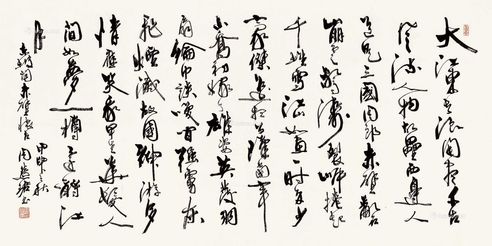 大江東去浪淘盡千古
風流人物故壘西邊人
道是三國周郎赤壁亂石
崩雲驚濤裂岸捲起
千堆雪江山如畫一時多少
豪傑遙想公瑾當年
小喬初嫁了雄姿英發羽
扇綸巾談笑間強虜灰
飛煙滅故國神游多
情應笑我早生華髮人
間如夢一樽還酹江
月
東坡詞赤壁懷古
秋周慧珺書